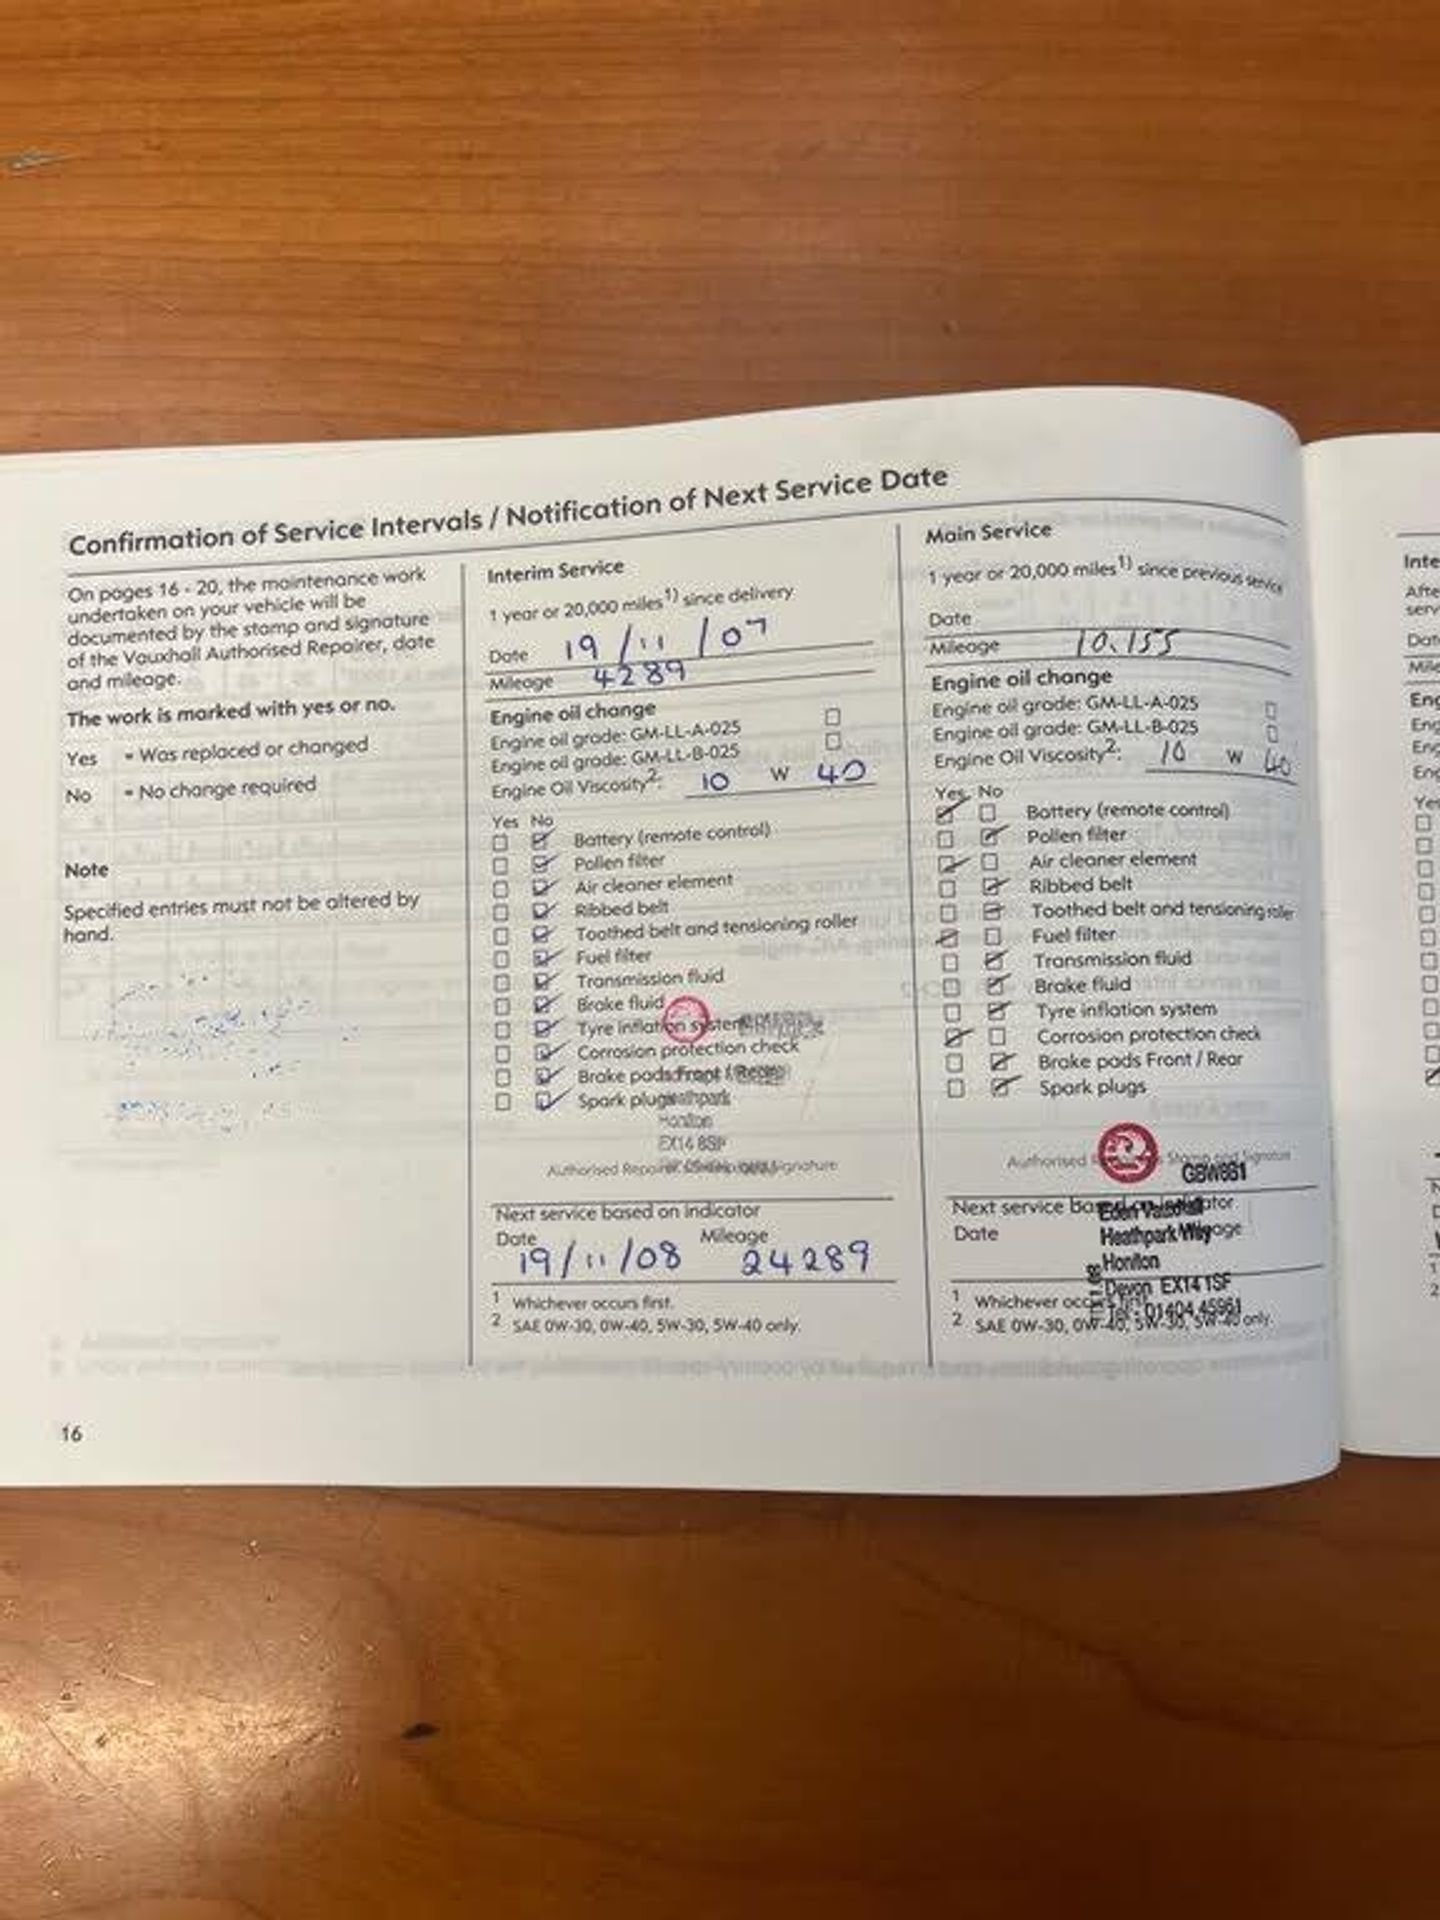 Confirmation of Service Intervals / Notification of Next Service Date
On pages 16 - 20, the maintenance work
undertaken on your vehicle will be
documented by the stamp and signature
of the Vauxhall Authorised Repairer, date
and mileage.
The work is marked with yes or no.
Yes = Was replaced or changed
No = No change required
Note
Specified entries must not be altered by
hand.
Interim Service
1 year or 20,000 miles1) since delivery
Date 19/11/07
Mileage 4289
Engine oil change
Engine oil grade: GM-LL-A-025
Engine oil grade: GM-LL-B-025
Engine Oil Viscosity2: 10 W 40
Yes No
Battery (remote control)
Pollen filter
Air cleaner element
Ribbed belt
Toothed belt and tensioning roller
Fuel filter
Transmission fluid
Brake fluid
Tyre inflation system
Corrosion protection check
Brake pads Front / Rear
Spark plugs
Heathpark
Honiton
EX14 8SP
Authorised Repairer Signature
Next service based on indicator
Date Mileage
19/11/08 24289
1 Whichever occurs first.
2 SAE 0W-30, 0W-40, 5W-30, 5W-40 only.
Main Service
1 year or 20,000 miles1) since previous service
Date
Mileage 10.155
Engine oil change
Engine oil grade: GM-LL-A-025
Engine oil grade: GM-LL-B-025
Engine Oil Viscosity2: 10 W 40
Yes No
Battery (remote control)
Pollen filter
Air cleaner element
Ribbed belt
Toothed belt and tensioning roller
Fuel filter
Transmission fluid
Brake fluid
Tyre inflation system
Corrosion protection check
Brake pads Front / Rear
Spark plugs
Authorised Stamp and Signature
GBW861
Next service based on indicator
Eden Vauxhall
Date Mileage
Heathpark Way
Honiton
Devon EX14 1SF
Tel: 01404 45961
1 Whichever occurs first.
2 SAE 0W-30, 0W-40, 5W-30, 5W-40 only.
16
Inte
Afte
serv
Date
Mile
Eng
Eng
Eng
Eng
Yes